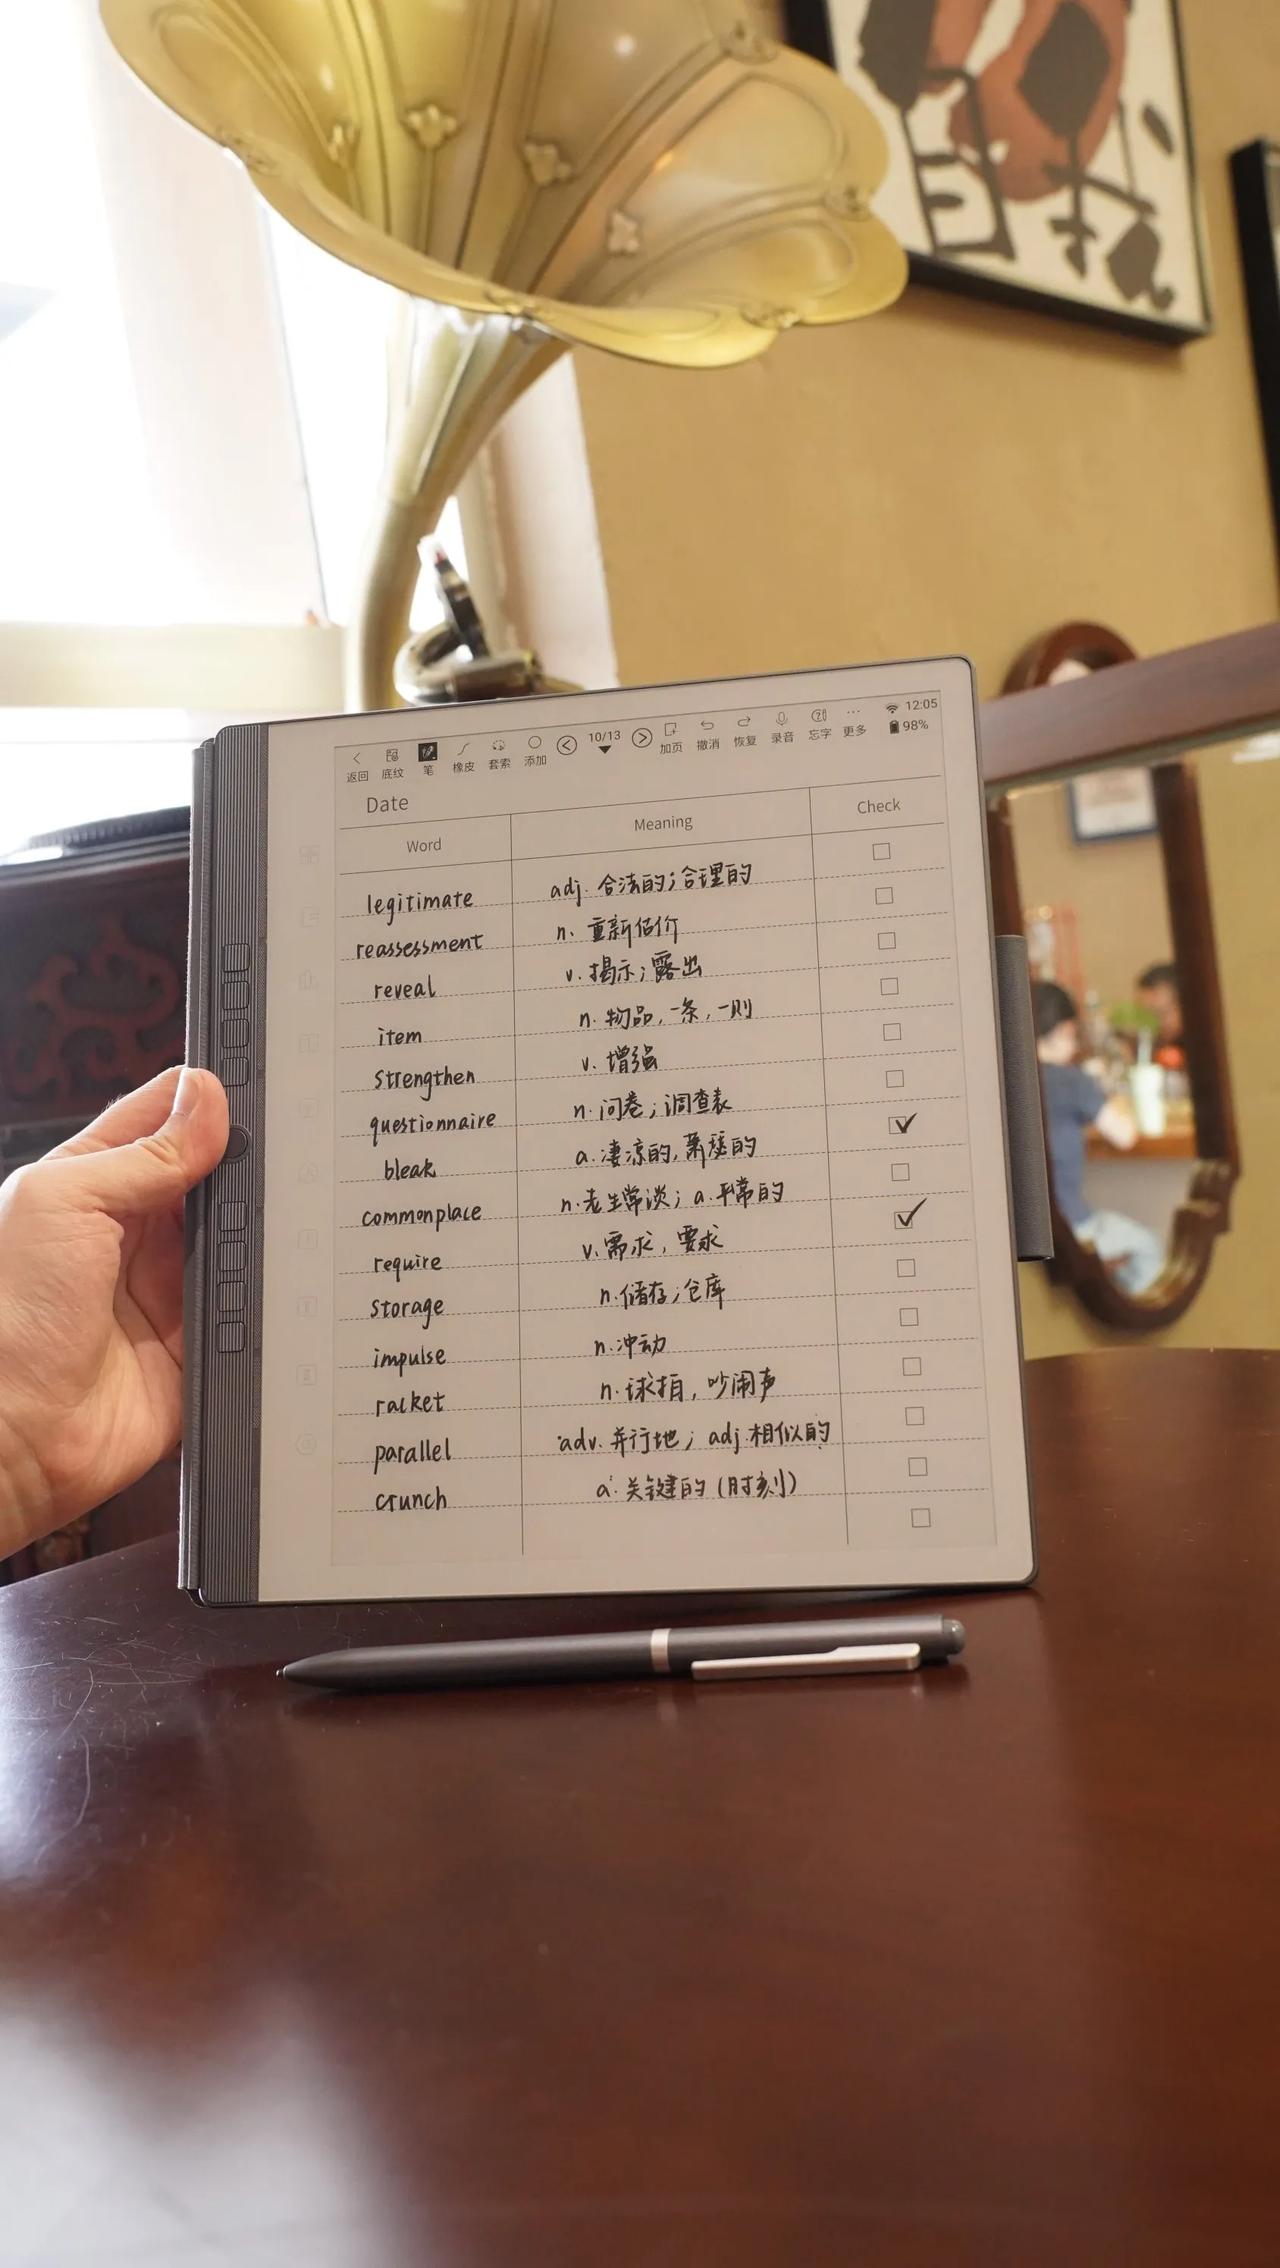 返回 底纹 笔 橡皮 套索 添加 10/13 加页 撤消 恢复 录音 忘字 更多 12:05 98%
Date
Word Meaning Check
legitimate adj. 合法的;合理的
reassessment n. 重新估价
reveal v. 揭示;露出
item n. 物品,一条,一则
strengthen v. 增强
questionnaire n. 问卷;调查表
bleak a. 凄凉的,萧瑟的
commonplace n. 老生常谈; a. 平常的
require v. 需求,要求
storage n. 储存;仓库
impulse n. 冲动
racket n. 球拍,吵闹声
parallel adv. 并行地; adj. 相似的
crunch a. 关键的(时刻)